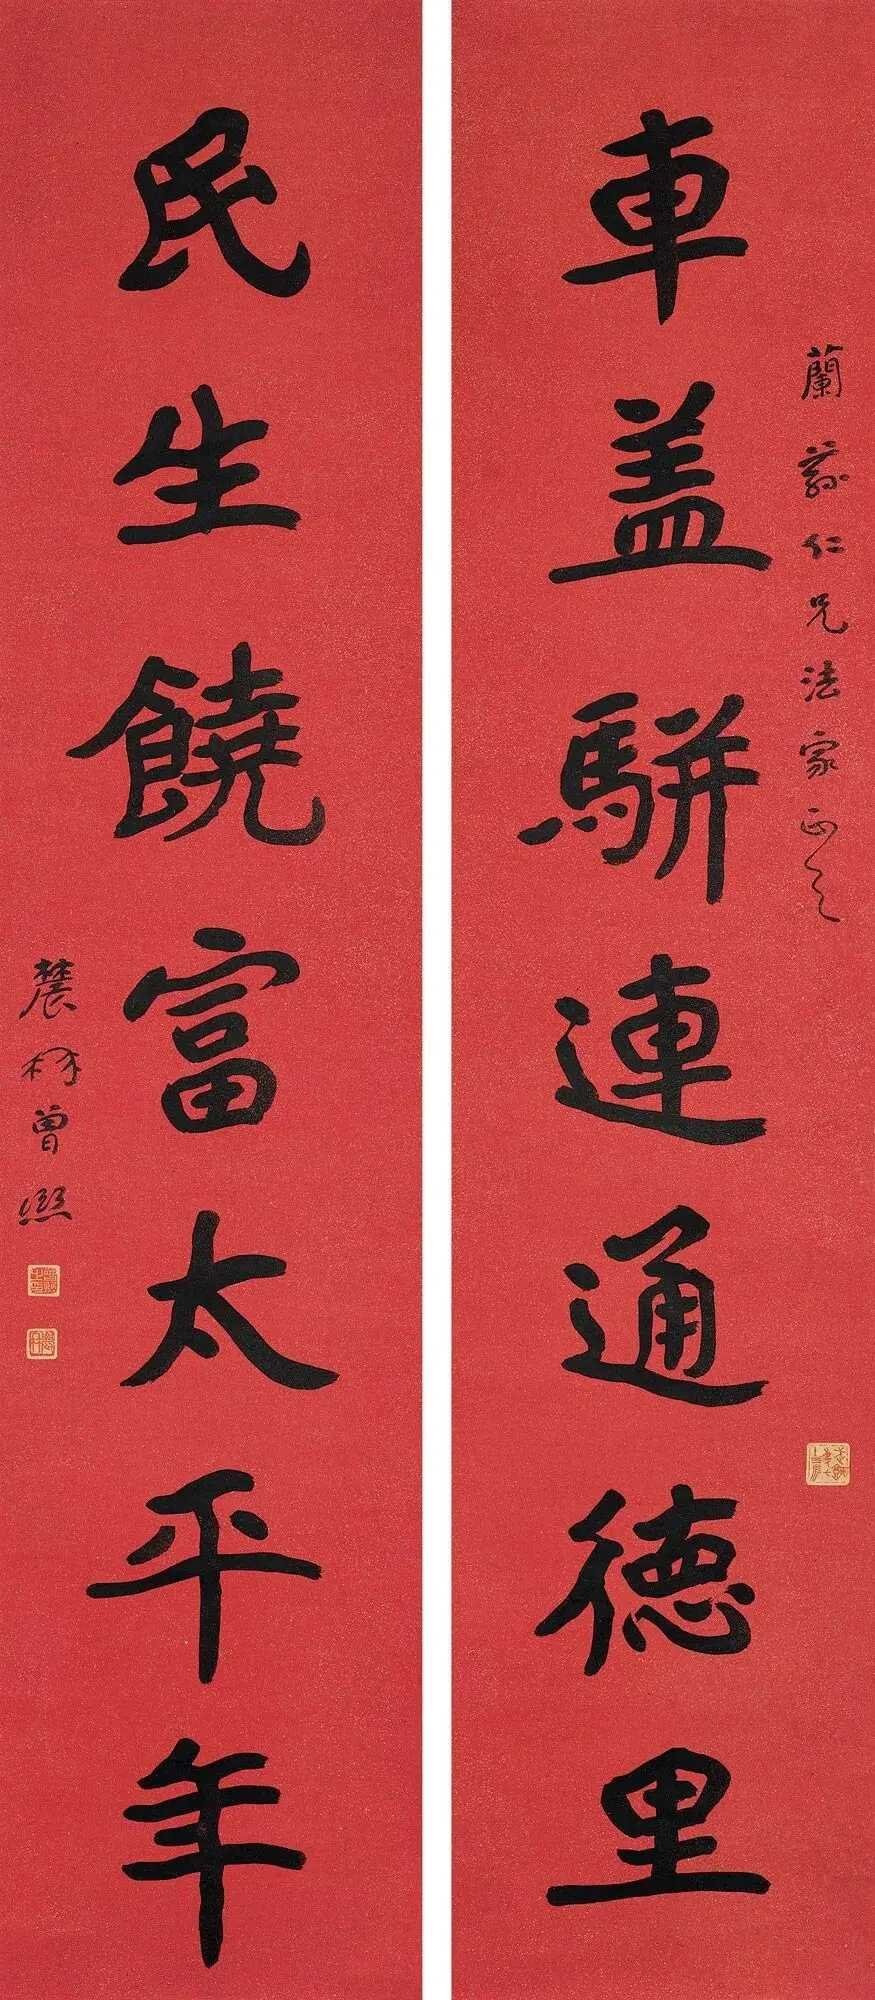 車盖駢連通德里
蘭蓀仁兄法家正之
民生饒富太平年
農髯曾熙